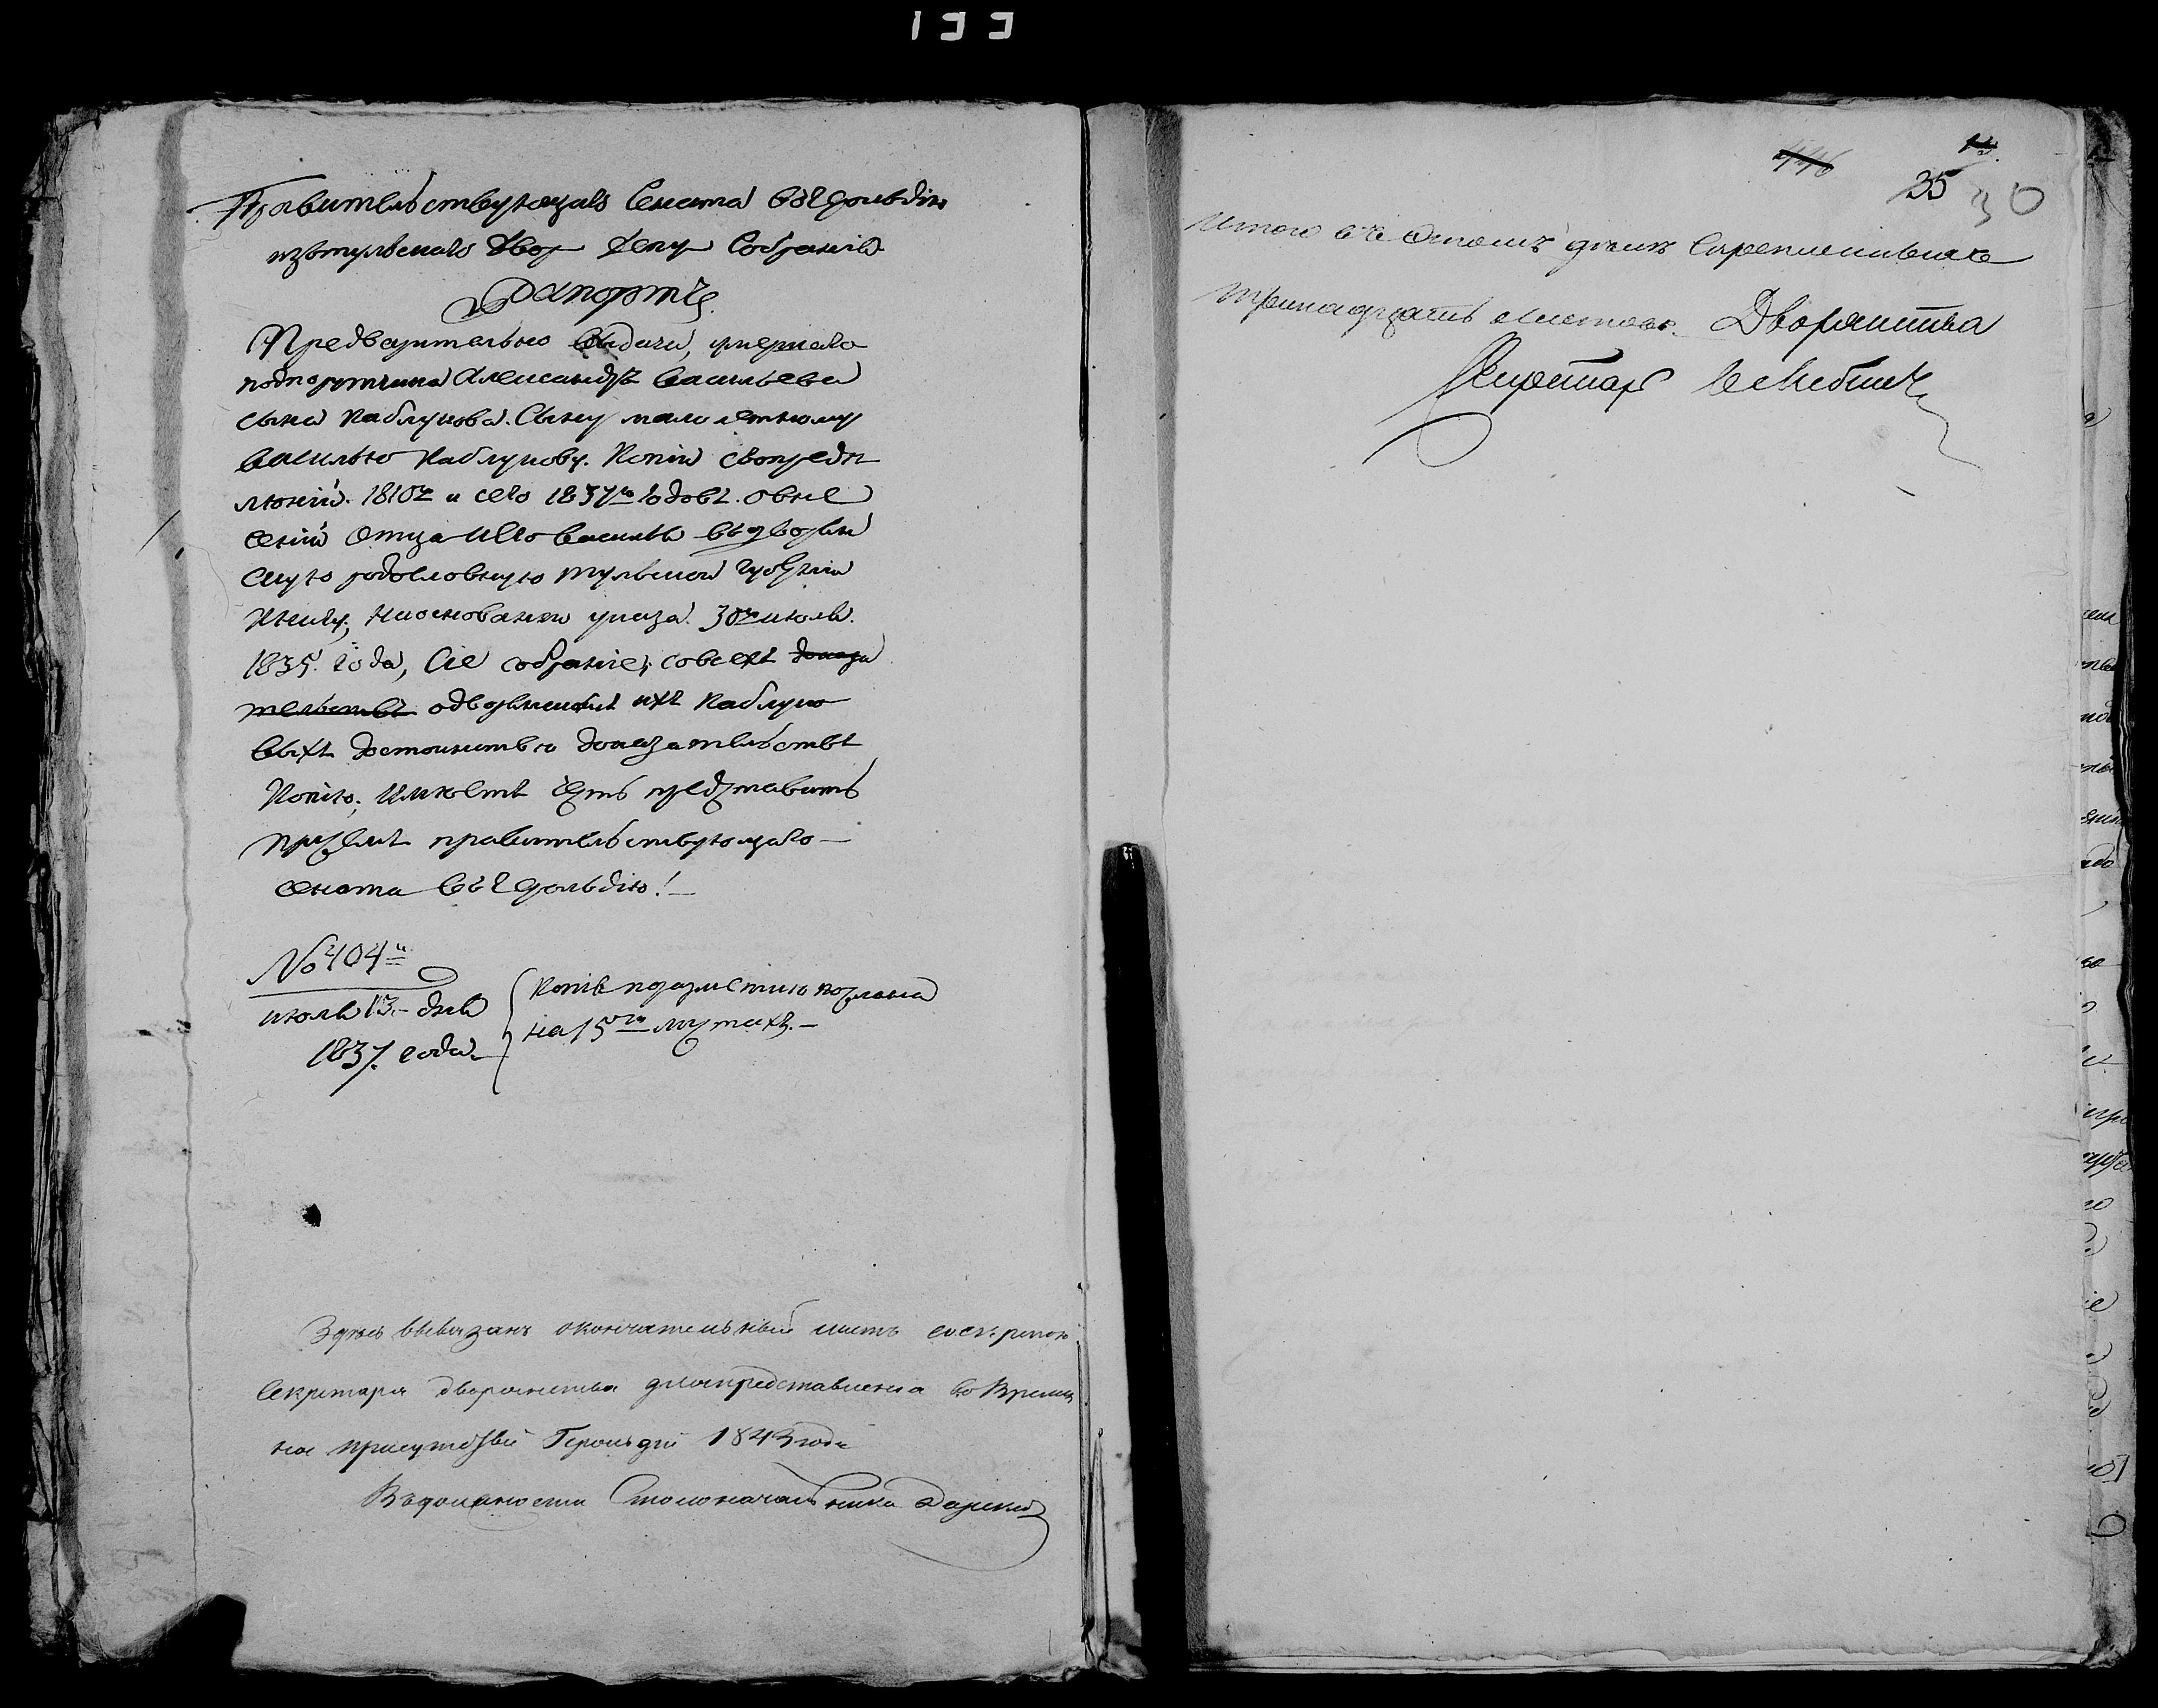 133
Правительствующаго Сената въ Герольдію
изъ тульскаго Двор Депу Собранія
Рапортъ.
Предварительно выдачи, умершаго
подпорутчика Александръ Васильева
сына Каблукова. Сыну малолетному
Василью Каблукову. Копіи съ опреде
леній. 1810го и сего 1837го годовъ. о вне
сеніи отца Его Василья въ дворян
скую родословную тульской губерніи
Книгу, на основаніи указа. 30го июля.
1835. года, Сіе собраніе, со всехъ доказа
тельствъ о дворянскомъ ихъ Каблуко
выхъ достоинстве доказательствъ
Копію, имеетъ честь представить
при семъ правительствующаго
сената въ Герольдію!
№ 404й
июля 13. дня
1837. года.
Копія по разместию послана
на 15ти листахъ.
Здесь вывязанъ окончательный листъ со скрепою
Секретаря дворянства для представления во Времен
ное присутствіе Герольдіи 1843 года
Въ должности Столоначальника
446
35
30
Итого въ Этомъ деле скрепленныхъ
тринадцать листовъ. Дворянства
Секретарь